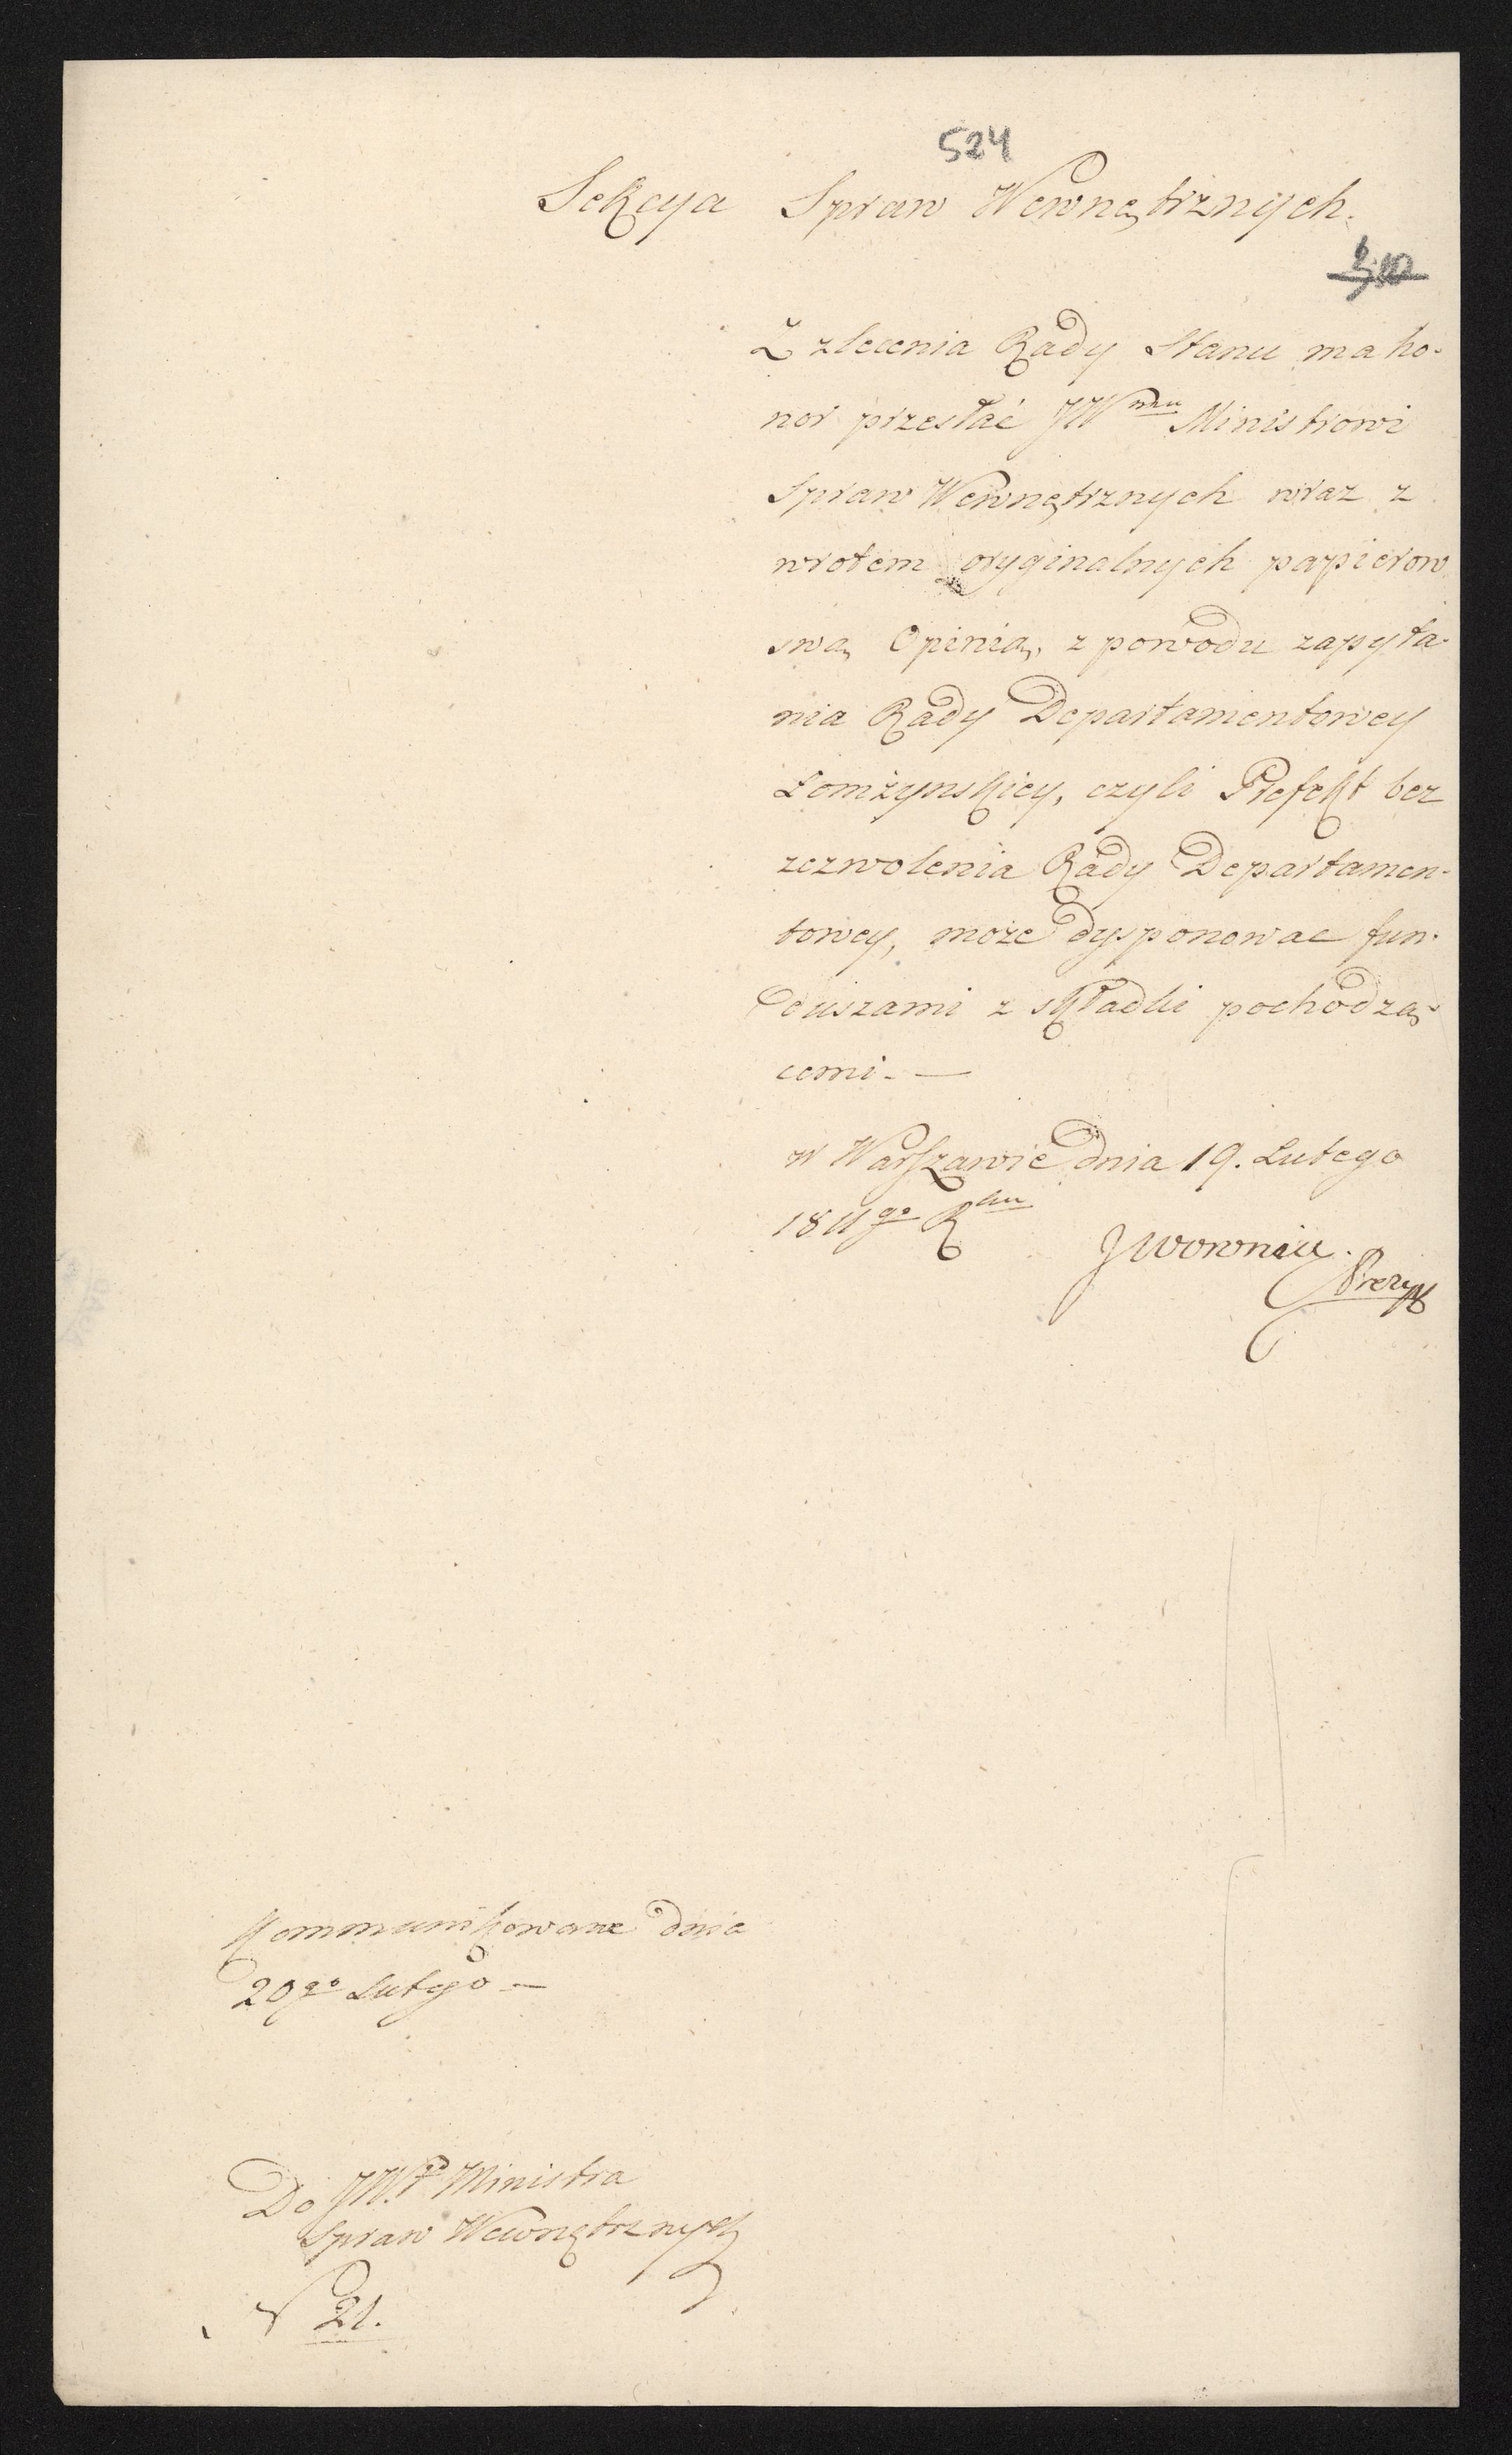 524
Sekcya Spraw Wewnętrznych.
Z zlecenia Rady Stanu ma ho-
nor przesłać JW mu Ministrowi
Spraw Wewnętrznych wraz z
wrotem oryginalnych papierow
swą Opinią, z powodu zapyta-
nia Rady Departamentowey
Łomżynskiey, czyli Prefekt bez
zezwolenia Rady Departamen-
towey, może dysponowac fun-
duszami z składki pochodzą-
cemi. —
w Warszawie dnia 19. Lutego
1811go Rku
Kommunikowane dnia
20go Lutego —
Do JW.P Ministra
Spraw Wewnętrznych
N 21.